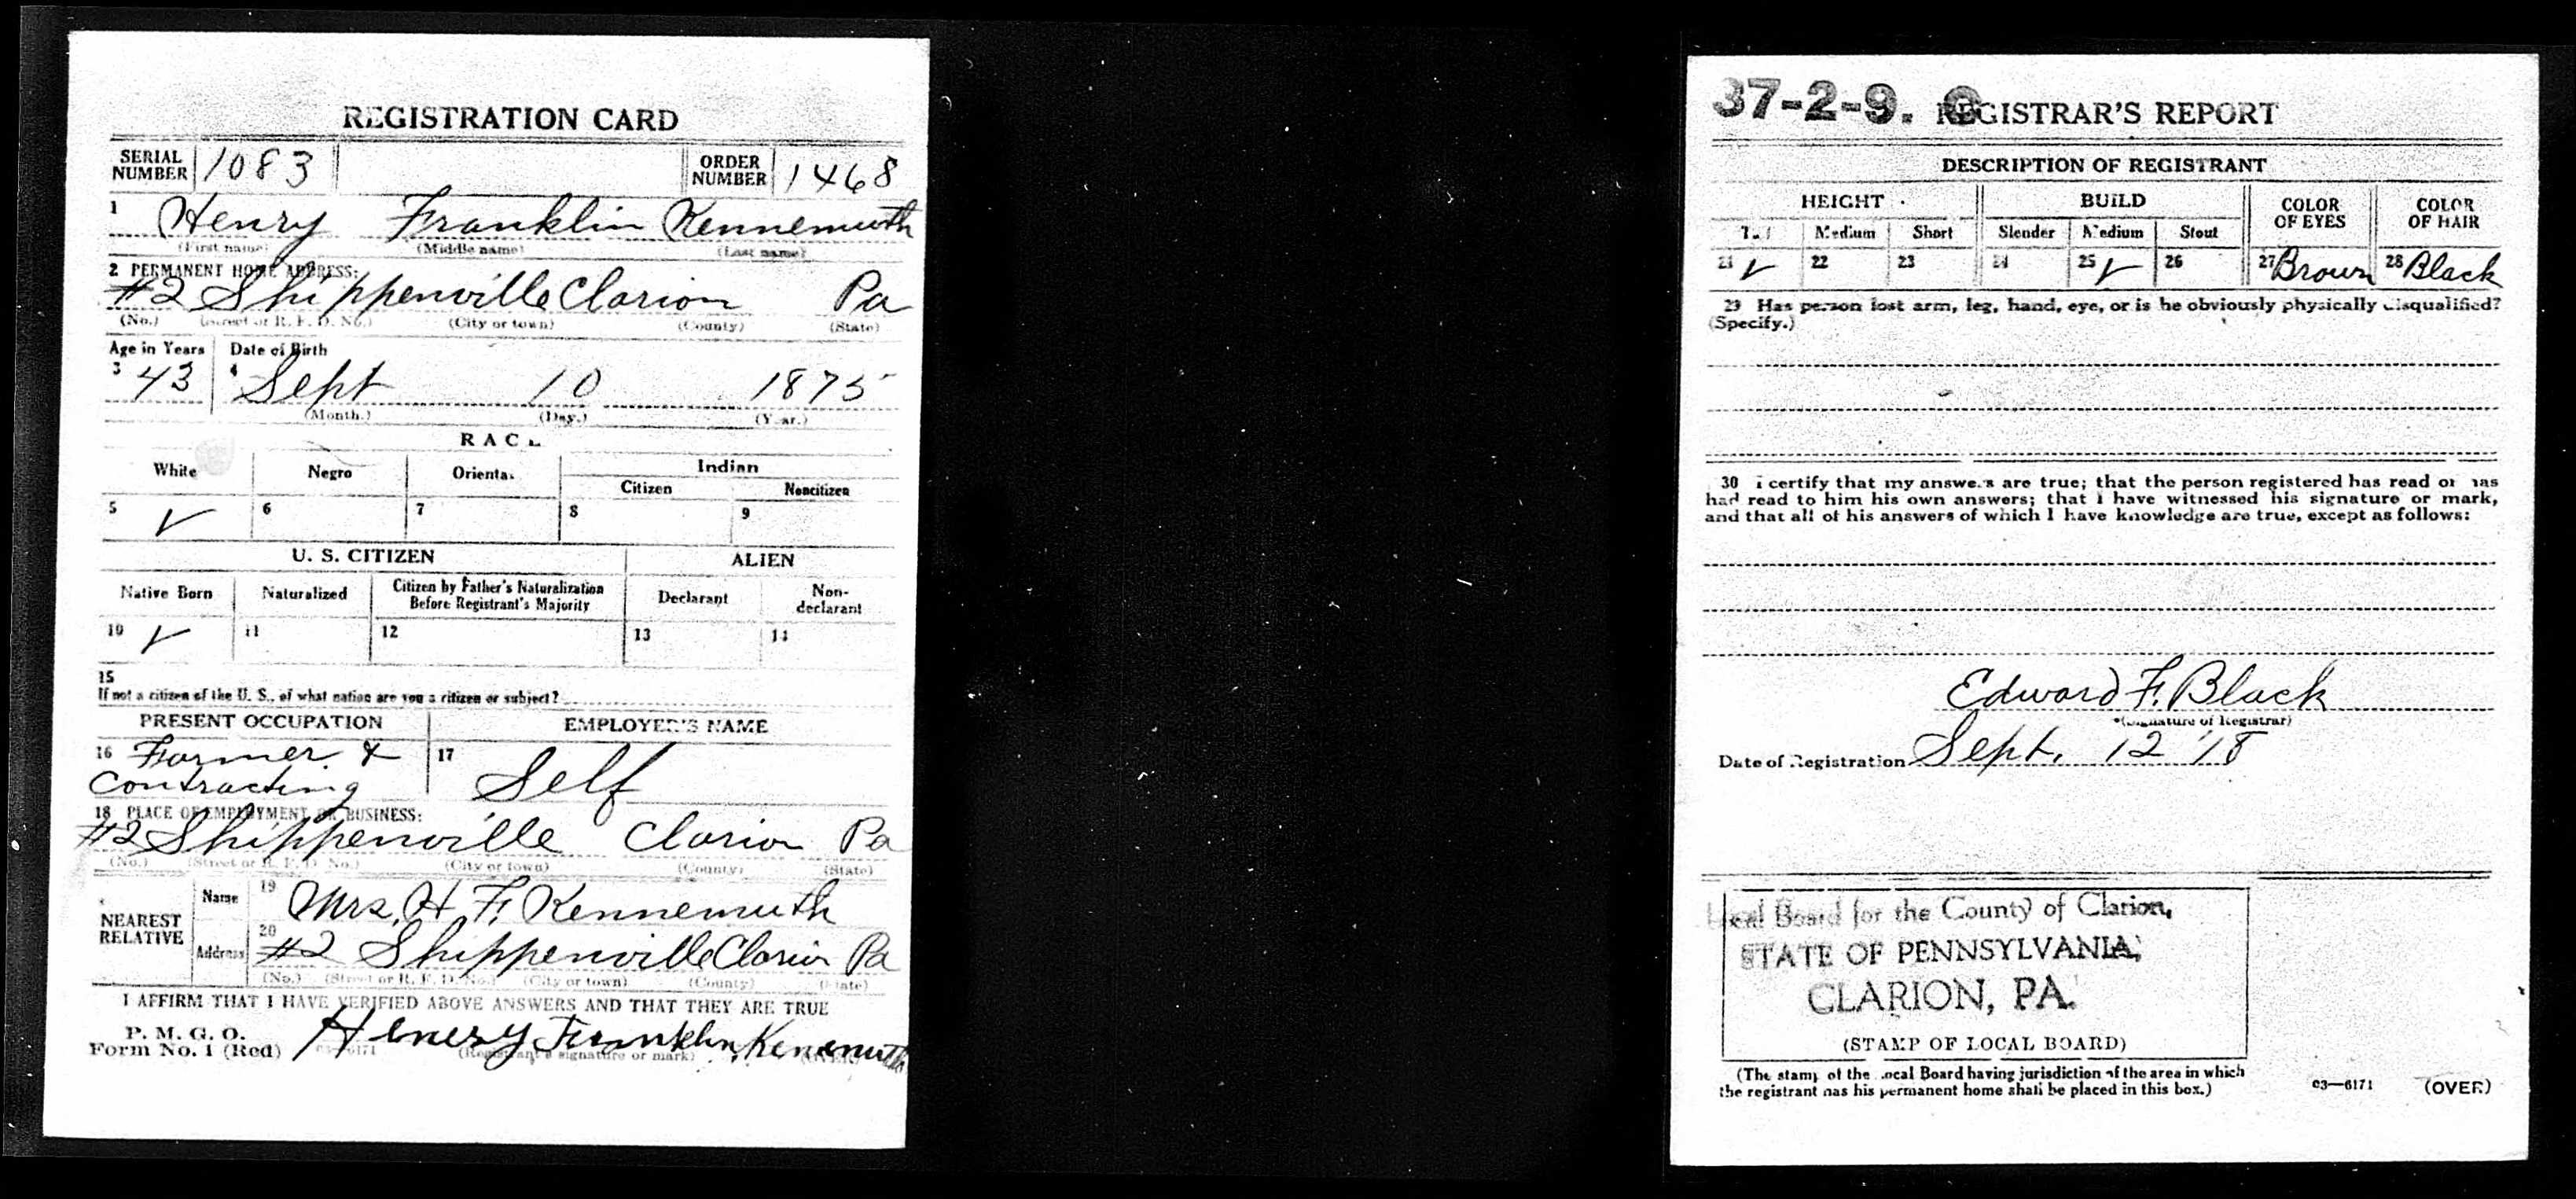 REGISTRATION CARD
SERIAL NUMBER 1083 ORDER NUMBER 1468
1 Henry Franklin Kennemuth
(First name) (Middle name) (Last name)
2 PERMANENT HOME ADDRESS:
#2 Shippenville Clarion Pa
(No.) (Street or R. F. D. No.) (City or town) (County) (State)
Age in Years Date of Birth
3 43 4 Sept 10 1875
(Month.) (Day.) (Year.)
RACE
White Negro Oriental Indian
Citizen Noncitizen
5 ✓ 6 7 8 9
U. S. CITIZEN ALIEN
Native Born Naturalized Citizen by Father's Naturalization Before Registrant's Majority Declarant Non-declarant
10 ✓ 11 12 13 14
15
If not a citizen of the U. S., of what nation are you a citizen or subject?
PRESENT OCCUPATION EMPLOYER'S NAME
16 Farmer & 17 Self
Contracting
18 PLACE OF EMPLOYMENT OR BUSINESS:
#2 Shippenville Clarion Pa
(No.) (Street or R. F. D. No.) (City or town) (County) (State)
NEAREST RELATIVE
Name 19 Mrs. H. F. Kennemuth
Address 20 #2 Shippenville Clarion Pa
(No.) (Street or R. F. D. No.) (City or town) (County) (State)
I AFFIRM THAT I HAVE VERIFIED ABOVE ANSWERS AND THAT THEY ARE TRUE
P. M. G. O.
Form No. 1 (Red) 03-6171 Henery Franklin Kennemuth
(Registrant's signature or mark) (OVER)
37-2-9. C REGISTRAR'S REPORT
DESCRIPTION OF REGISTRANT
HEIGHT BUILD COLOR OF EYES COLOR OF HAIR
Tall Medium Short Slender Medium Stout
21 ✓ 22 23 24 25 ✓ 26 27 Brown 28 Black
29 Has person lost arm, leg, hand, eye, or is he obviously physically disqualified?
(Specify.)
30 I certify that my answers are true; that the person registered has read or has
had read to him his own answers; that I have witnessed his signature or mark,
and that all of his answers of which I have knowledge are true, except as follows:
Edward F. Black
(Signature of Registrar)
Date of Registration Sept. 12 '18
Local Board for the County of Clarion,
STATE OF PENNSYLVANIA,
CLARION, PA.
(STAMP OF LOCAL BOARD)
(The stamp of the Local Board having jurisdiction of the area in which
the registrant has his permanent home shall be placed in this box.)
03—6171 (OVER)